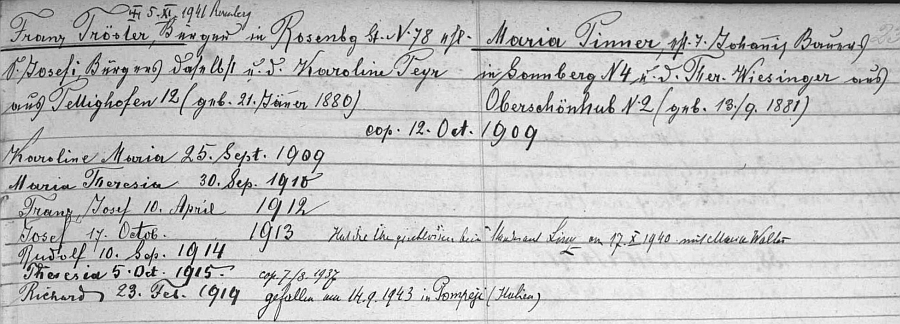 5. XI. 1941
Franz Tröster, Bürger in Rosenbg St. N. 78 ehl.
S. Josefi, Bürgers daselbst u. d. Karoline Teyr
aus Tettighofen 12 (geb. 21. Jäner 1880)
Maria Pinner, ehl. T. Johannis Bauers
in Sonnberg N 4 u. d. Ther. Wiesinger aus
Oberschönhub N. 2 (geb. 13./9. 1881.)
cop. 12. Oct. 1909
Karoline Maria 25. Sept. 1909
Maria Theresia 30. Sep. 1910
Franz Josef 10. April 1912
Josef 17. Octob. 1913 Hat die Ehe geschlossen beim Linz am 17. X 1940 mit Maria Walter
Rudolf 10. Sep. 1914
Theresia 5. Oct. 1915. cop. 7./8. 1937
Richard 23. Feb. 1919 gefallen am 14.9.1943 in Pompeji (Italien)